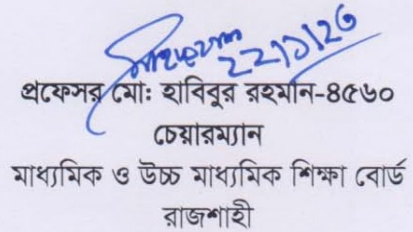 ২২/১/২৩
প্রফেসর মো: হাবিবুর রহমান-৪৫৬০
চেয়ারম্যান
মাধ্যমিক ও উচ্চ মাধ্যমিক শিক্ষা বোর্ড
রাজশাহী